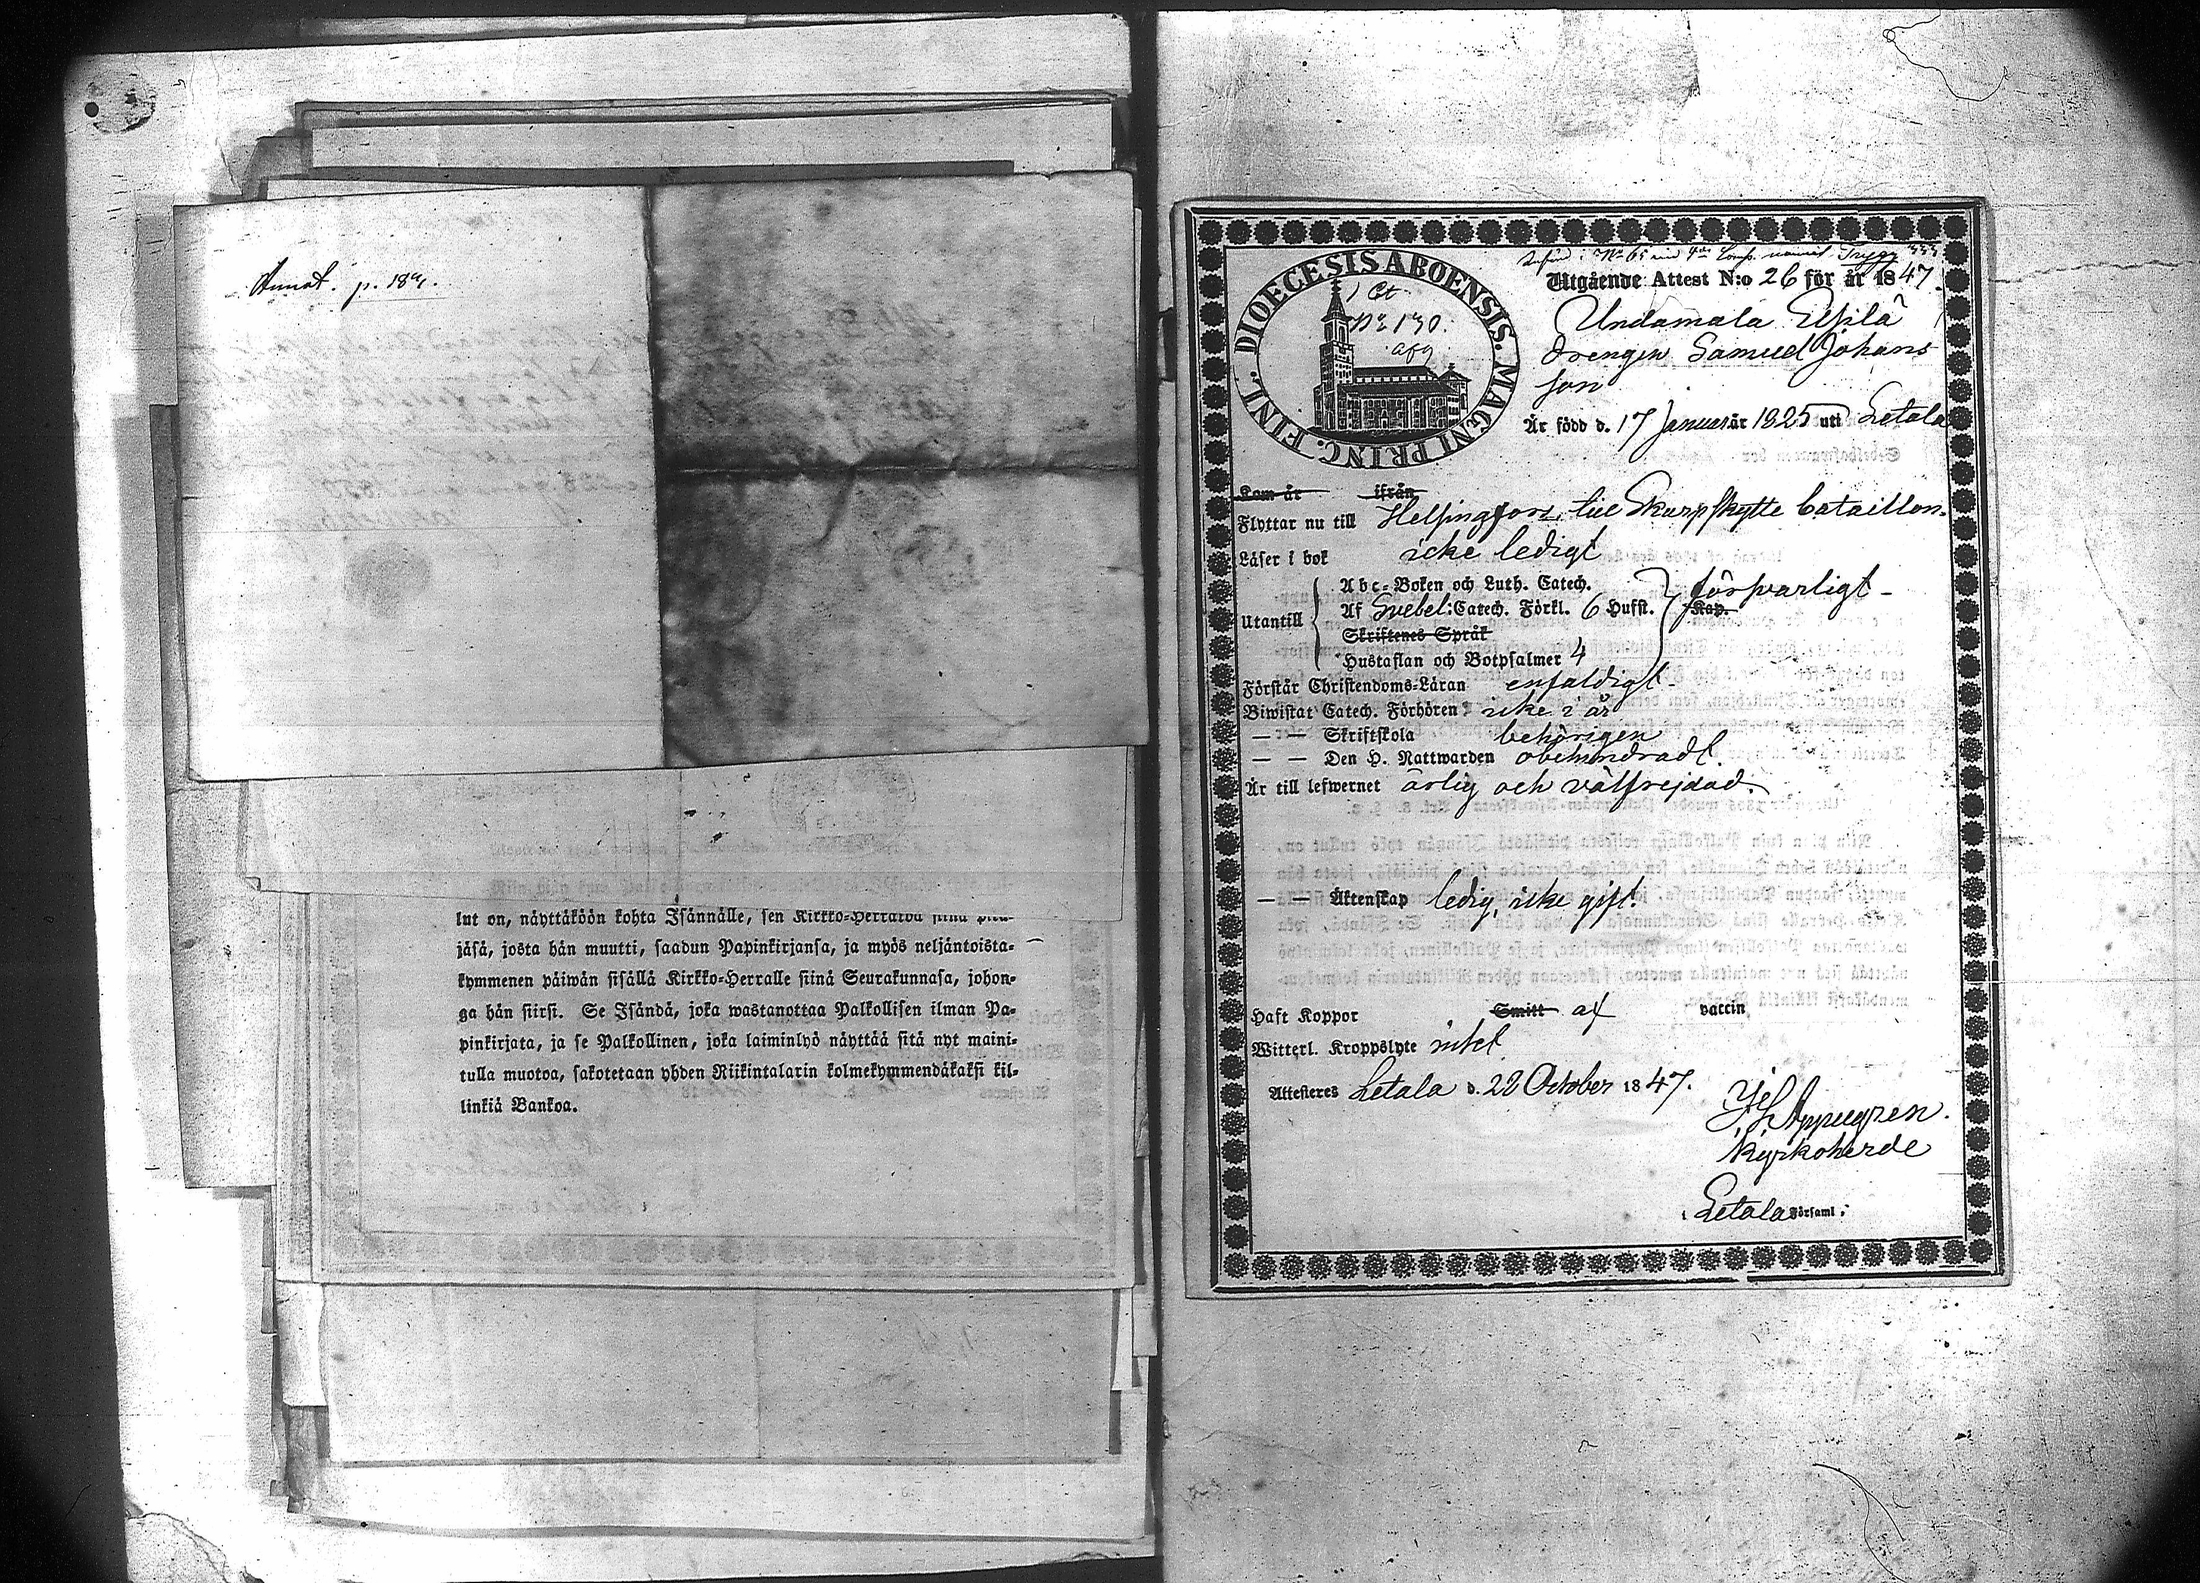 Annot. p. 189.
lut on, näyttäköön kohta Isännälle, sen Kirkko-Herralda siinä pitä-
jäsä, josta hän muutti, saadun Papinkirjansa, ja myös neljäntoista-
kymmenen päiwän sisällä Kirkko-Herralle siinä Seurakunnasa, johon-
ga hän siirsi. Se Isändä, joka wastanottaa Palkollisen ilman Pa-
pinkirjata, ja se Palkollinen, joka laiminlyö näyttää sitä nyt maini-
tulla muotoa, sakotetaan yhden Riikintalarin kolmekymmendäkaksi kil-
linkiä Bankoa.
DIOECESIS ABOENSIS. MAGNI PRINC. FINL.
1 Ct
No 130.
afg
Utgående Attest N:o 26 för år 1847.
Undamala Ylipilä
drengen Samuel Johans
son
Är född d. 17 Januari år 1825 uti Letala
Kom år ifrån
Flyttar nu till Helsingfors, till Skarpskytte bataillon.
Läser i bok icke ledigt
Abc-Boken och Luth. Catech.
Utantill Af Svebel: Catech. Förkl. 6 Hufst. Kap. försvarligt -
Skriftenes Språk
Hustaflan och Botpsalmer 4
Förstår Christendoms-Läran enfaldigt -
Biwistat Catech. Förhören icke i år
— — Skriftskola behörigen
— — Den H. Nattwarden obehindradt.
Är till lefwernet ärlig och välfrejdad.
— — Äktenskap ledig, icke gift.
Haft Koppor Smitt- af vaccin
Witterl. Kroppslyte intet
Attesteres Letala d. 28 October 1847.
Appelgren.
Kyrkoherde
i Letala Församl: